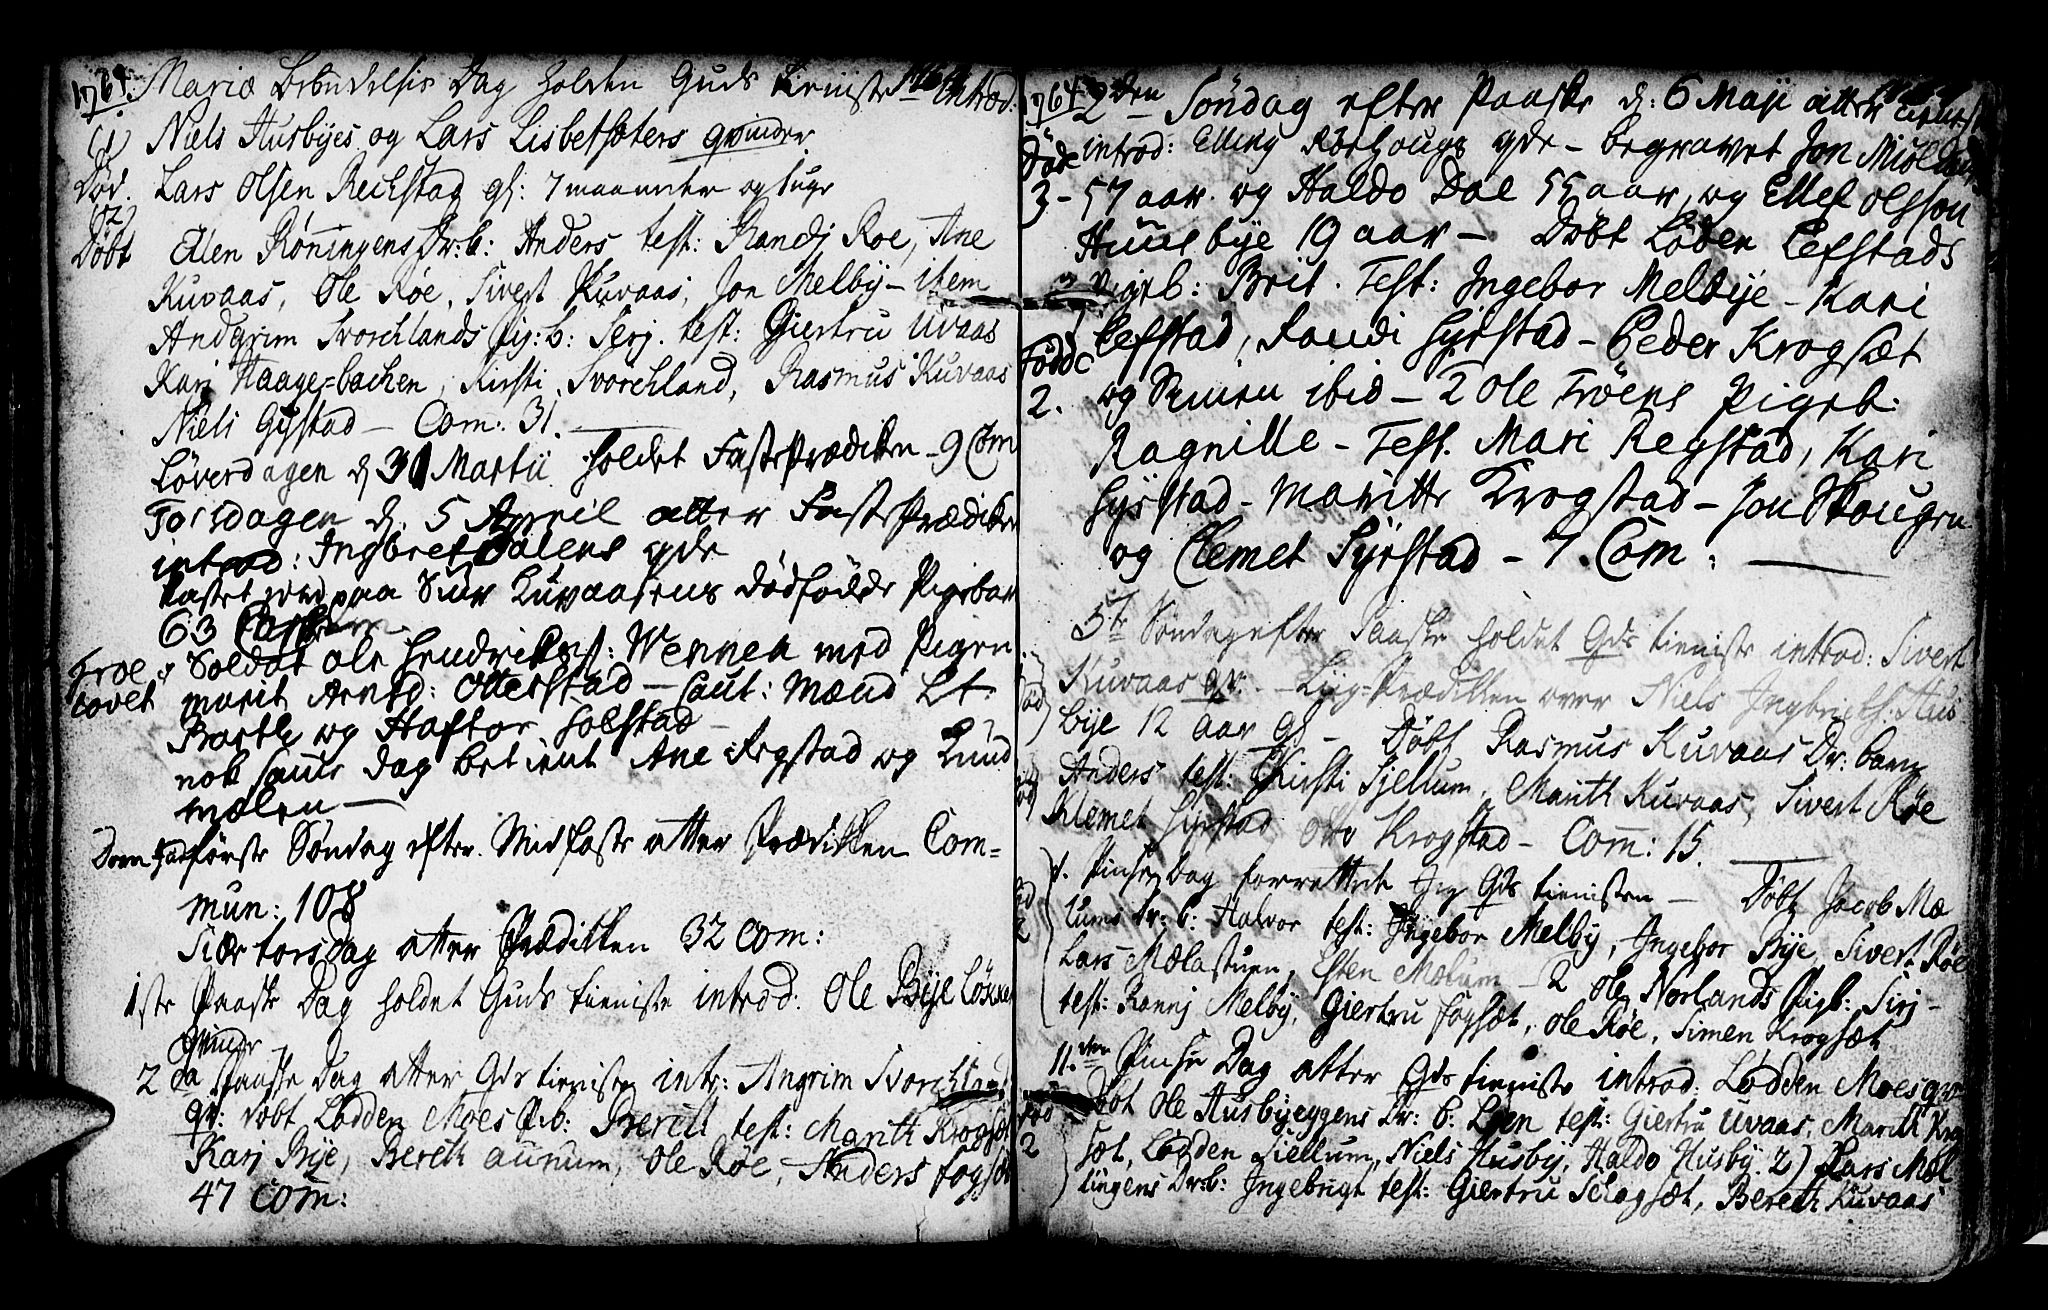 1764. Mariæ Bebudelsis Dag holden Guds tieniste introd:
(1) Niels Husbÿes og Lars Lisbetsæters qvinder
Død. Lars Olsen Rechstag gl: 7 maaneter og 1 uge
(2)
Døbt Ellen Røningens Dr: b: Anders test: Randj Roe, Ane
Kuvaas, Ole Røe, Sivert Kuvaas, Jon Melby - item
Andgrim Svorchlands Pig: b: Serj. test: Giertru Uvaas
Karj Haage=bachen, Kirsti Svorchland, Rasmus Kuvaas
Niels Gÿstad - Com: 31.
Løverdagen d 31 Martii holdet Faste Prædiken - 9 Com
Torsdagen d. 5 April atter Faste Prædiken
introd: Ingbret Dalens qde
kastet jord paa Siur Kuvaasens dødfødde Pigebarn
63
Troe lovet Soldat Ole Hendrichs: Wennea med Pigen
Marit Arntsd: Otterstad - Caut: Mænd Lt.
Barth og Haftor Solstad
nok sam dag betient Ane Regstad og Lund
mælen -
Dom: Jud første Søndag efter Midfaste atter Prædikken Com=
mun: 108
Skiær torsdag atter Prædikken 32 Com:
1ste Paaske Dag holdet Guds tieniste introd: Ole Bÿe
qvinde
2 da Paaske Dag atter Gds tieniste intr: Angrim Svorchland
qv: døbt Lodden Moes P:b: Berett test: Maritt Krogsæt
Karj Bÿe, Bereth aunum, Ole Røe, Anders fogsæt
47 Com:
1764 2 den Søndag efter Paaske d: 6 Maji atter
Døde introd: Elling Røehougs qde - begravet Jon
3 - 57 aar og Haldo Dal 55 aar og Ellef Olsson
Huusbÿe 19 aar - Døbt Loden Lefstads
Pigeb: Brit. Test: Ingebor Melbÿe - Kari
Lefstad, Randi Gÿrstad - Peder Krogsæt
Fødde
2. og Simen ibid - 2 Ole Trøens Pigeb.
Ragnille - Test. Mari Regstad, Kari
Gÿrstad - Maritte Krogstad - Jon Skougen
og Clemet Gÿrstad - 7 Com:
5te Søndag efter Paaske holdet Gds tieniste introd: Sivert
Kuvaas qv. - Liig=Prædikken over Niels Ingbrichts: Hus
bÿe 12 aar gl - Døbt Rasmus Kuvaas Dr: barn
Anders test: Kirsti Sjellum, Marith Kuvaas, Sivert Røe
Klemet Gÿrstad Otto Krogstad - Com: 15.
1. Pinse Dag forrettede Jeg Gds tienisten - Døbt Jacob Mæ
lums Dr: b: Halvor test: Ingebor Melbÿ, Ingebor Bÿe, Sivert Røe
2 Lars Mælastuen, Esten Mælum - 2 Ole Norlands Pigb: Sirj -
test: Rannj Melbÿ, Giertru fogsæt, Ole Røe, Simen Krogsæt
11. den Pinse Dag atter Gds tieniste introd: Lodden Moes qv
Døbt Ole Husbÿeggens Dr: b: Loen test: Giertru Uvaas, Marith Krog
2 sæt, Lodden Siellum, Niels Husbÿ, Haldo Husbÿ. 2) Lars Mæl
lingens Dr:b: Ingebrigt test: Giertru Schogsæt, Bereth Kuvaas